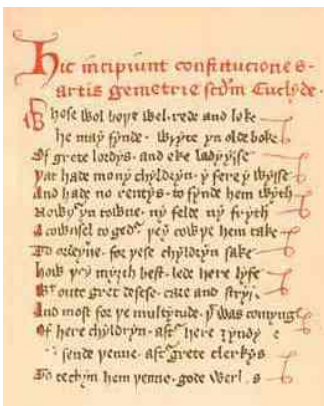 Hic incipiunt constituciones
artis gemetrie scdm Euclyde.
Whose wol bothe wel rede and loke
he may fynde wryte yn olde boke
Of grete lordys and eke ladyysse
þat hade mony chyldryn y fere y wysse
And hade no rentys to fynde hem wyth
Nowþ yn towne ny felde ny fryth
A cownsel togedr þey cowþe hem take
To ordeyne for þese chyldryn sake
how þey myȝth best lede here lyfe
Wt oute gret desese care and stryf
And most for þe multytude þt was comyng
Of here chyldryn aftr here ȝyndyng
sende þenne aftr grete clerkys
To techyn hem þenne gode werkys